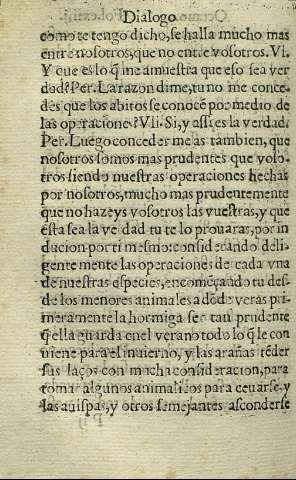 Dialogo
como te tengo dicho, se halla mucho mas
entre nosotros, que no entre vosotros. Vl.
Y que es lo q̃ me amuestra que eso sea ver
dad? Per. La razon dime, tu no me conce-
des que los abitos se conocẽ por medio de
las operaciones? Vli. Si, y assi es la verdad.
Per. Luego conceder me las tambien, que
nosotros somos mas prudentes que voso-
tros siendo nuestras operaciones hechas
por nosotros, mucho mas prudentemente
que no hazeys vosotros las vuestras, y que
esta sea la verdad tu te lo prouaras, por in
ducion por ti mesmo: considerando deli-
gente mente las operaciones de cada vna
de nuestras especies, encomẽçando tu des-
de los menores animales a dõde veras pri
meramente la hormiga ser tan prudente
q̃ ella guarda enel verano todo lo q̃ le con
uiene para el inuierno, y las arañas tẽder
sus laços con mucha consideracion, para
tomar algunos animalicos para ceuarse, y
las auispas, y otros semejantes asconderse